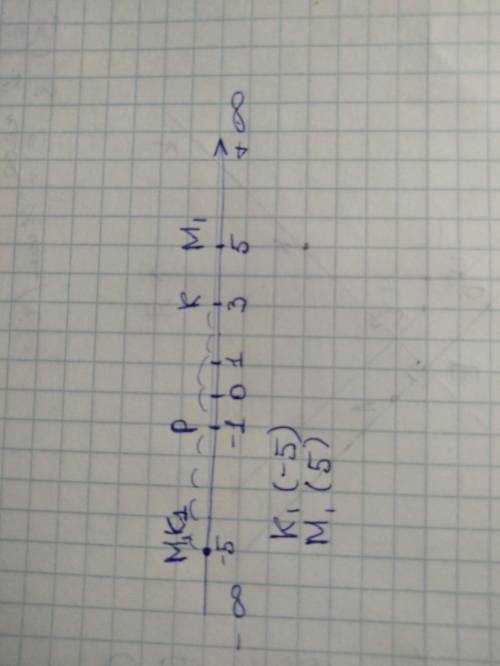 M, K₁ P K M₁
-∞ -5 -1 0 1 3 5 +∞
K₁ (-5)
M₁ (5)